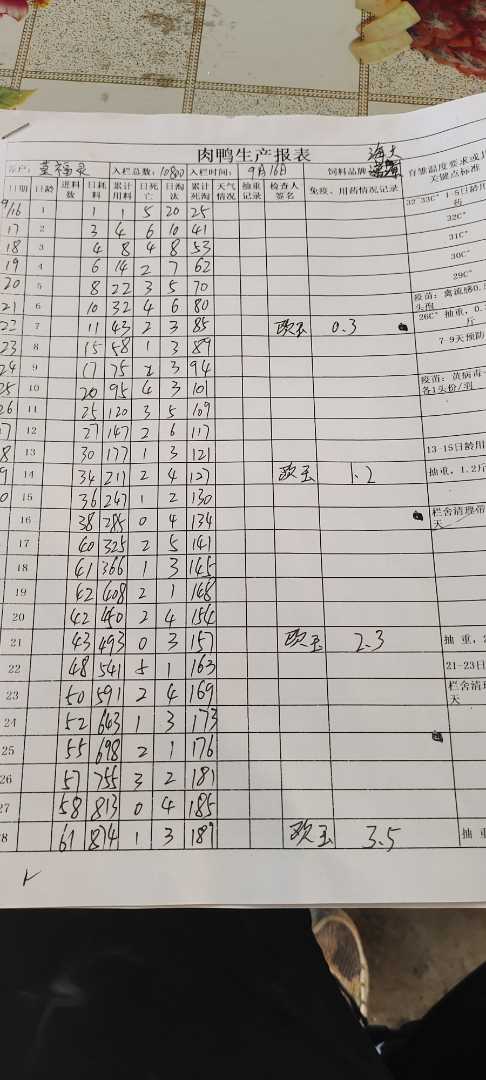 肉鸭生产报表
客户： 董福录 入栏总数：10800 入栏时间： 9月16日 饲料品牌 海大 育雏温度要求或
日期 日龄 进料数 日耗料 累计用料 日死亡 日淘汰 累计死淘 天气情况 抽重记录 检查人签名 免疫、用药情况记录 关键点标准
9/16 1 1 1 5 20 25 32-33C° 1-5日龄用药
17 2 3 4 6 10 41 32C°
18 3 4 8 4 8 53 31C°
19 4 6 14 2 7 62 30C°
20 5 8 22 3 5 70 29C°
21 6 10 32 4 6 80 疫苗：禽流感0.
22 7 11 43 2 3 85 欧玉 0.3 26C° 抽重，0.
23 8 15 58 1 3 89 7-9天预防
24 9 17 75 2 3 94
25 10 20 95 4 3 101 疫苗：黄病毒 各1头份/羽
26 11 25 120 3 5 109
7 12 27 147 2 6 117
8 13 30 177 1 3 121 13-15日龄用
9 14 34 211 2 4 127 欧玉 1.2 抽重，1.2斤
0 15 36 247 1 2 130
16 38 285 0 4 134 栏舍清理带 天
17 40 325 2 5 141
18 41 366 1 3 145
19 42 408 2 1 148
20 42 450 2 4 154
21 43 493 0 3 157 欧玉 2.3 抽 重，2
22 48 541 5 1 163 21-23日
23 50 591 2 4 169 栏舍清理 天
24 52 643 1 3 173
25 55 698 2 1 176
26 57 755 3 2 181
27 58 813 0 4 185
28 61 874 1 3 189 欧玉 3.5 抽 重